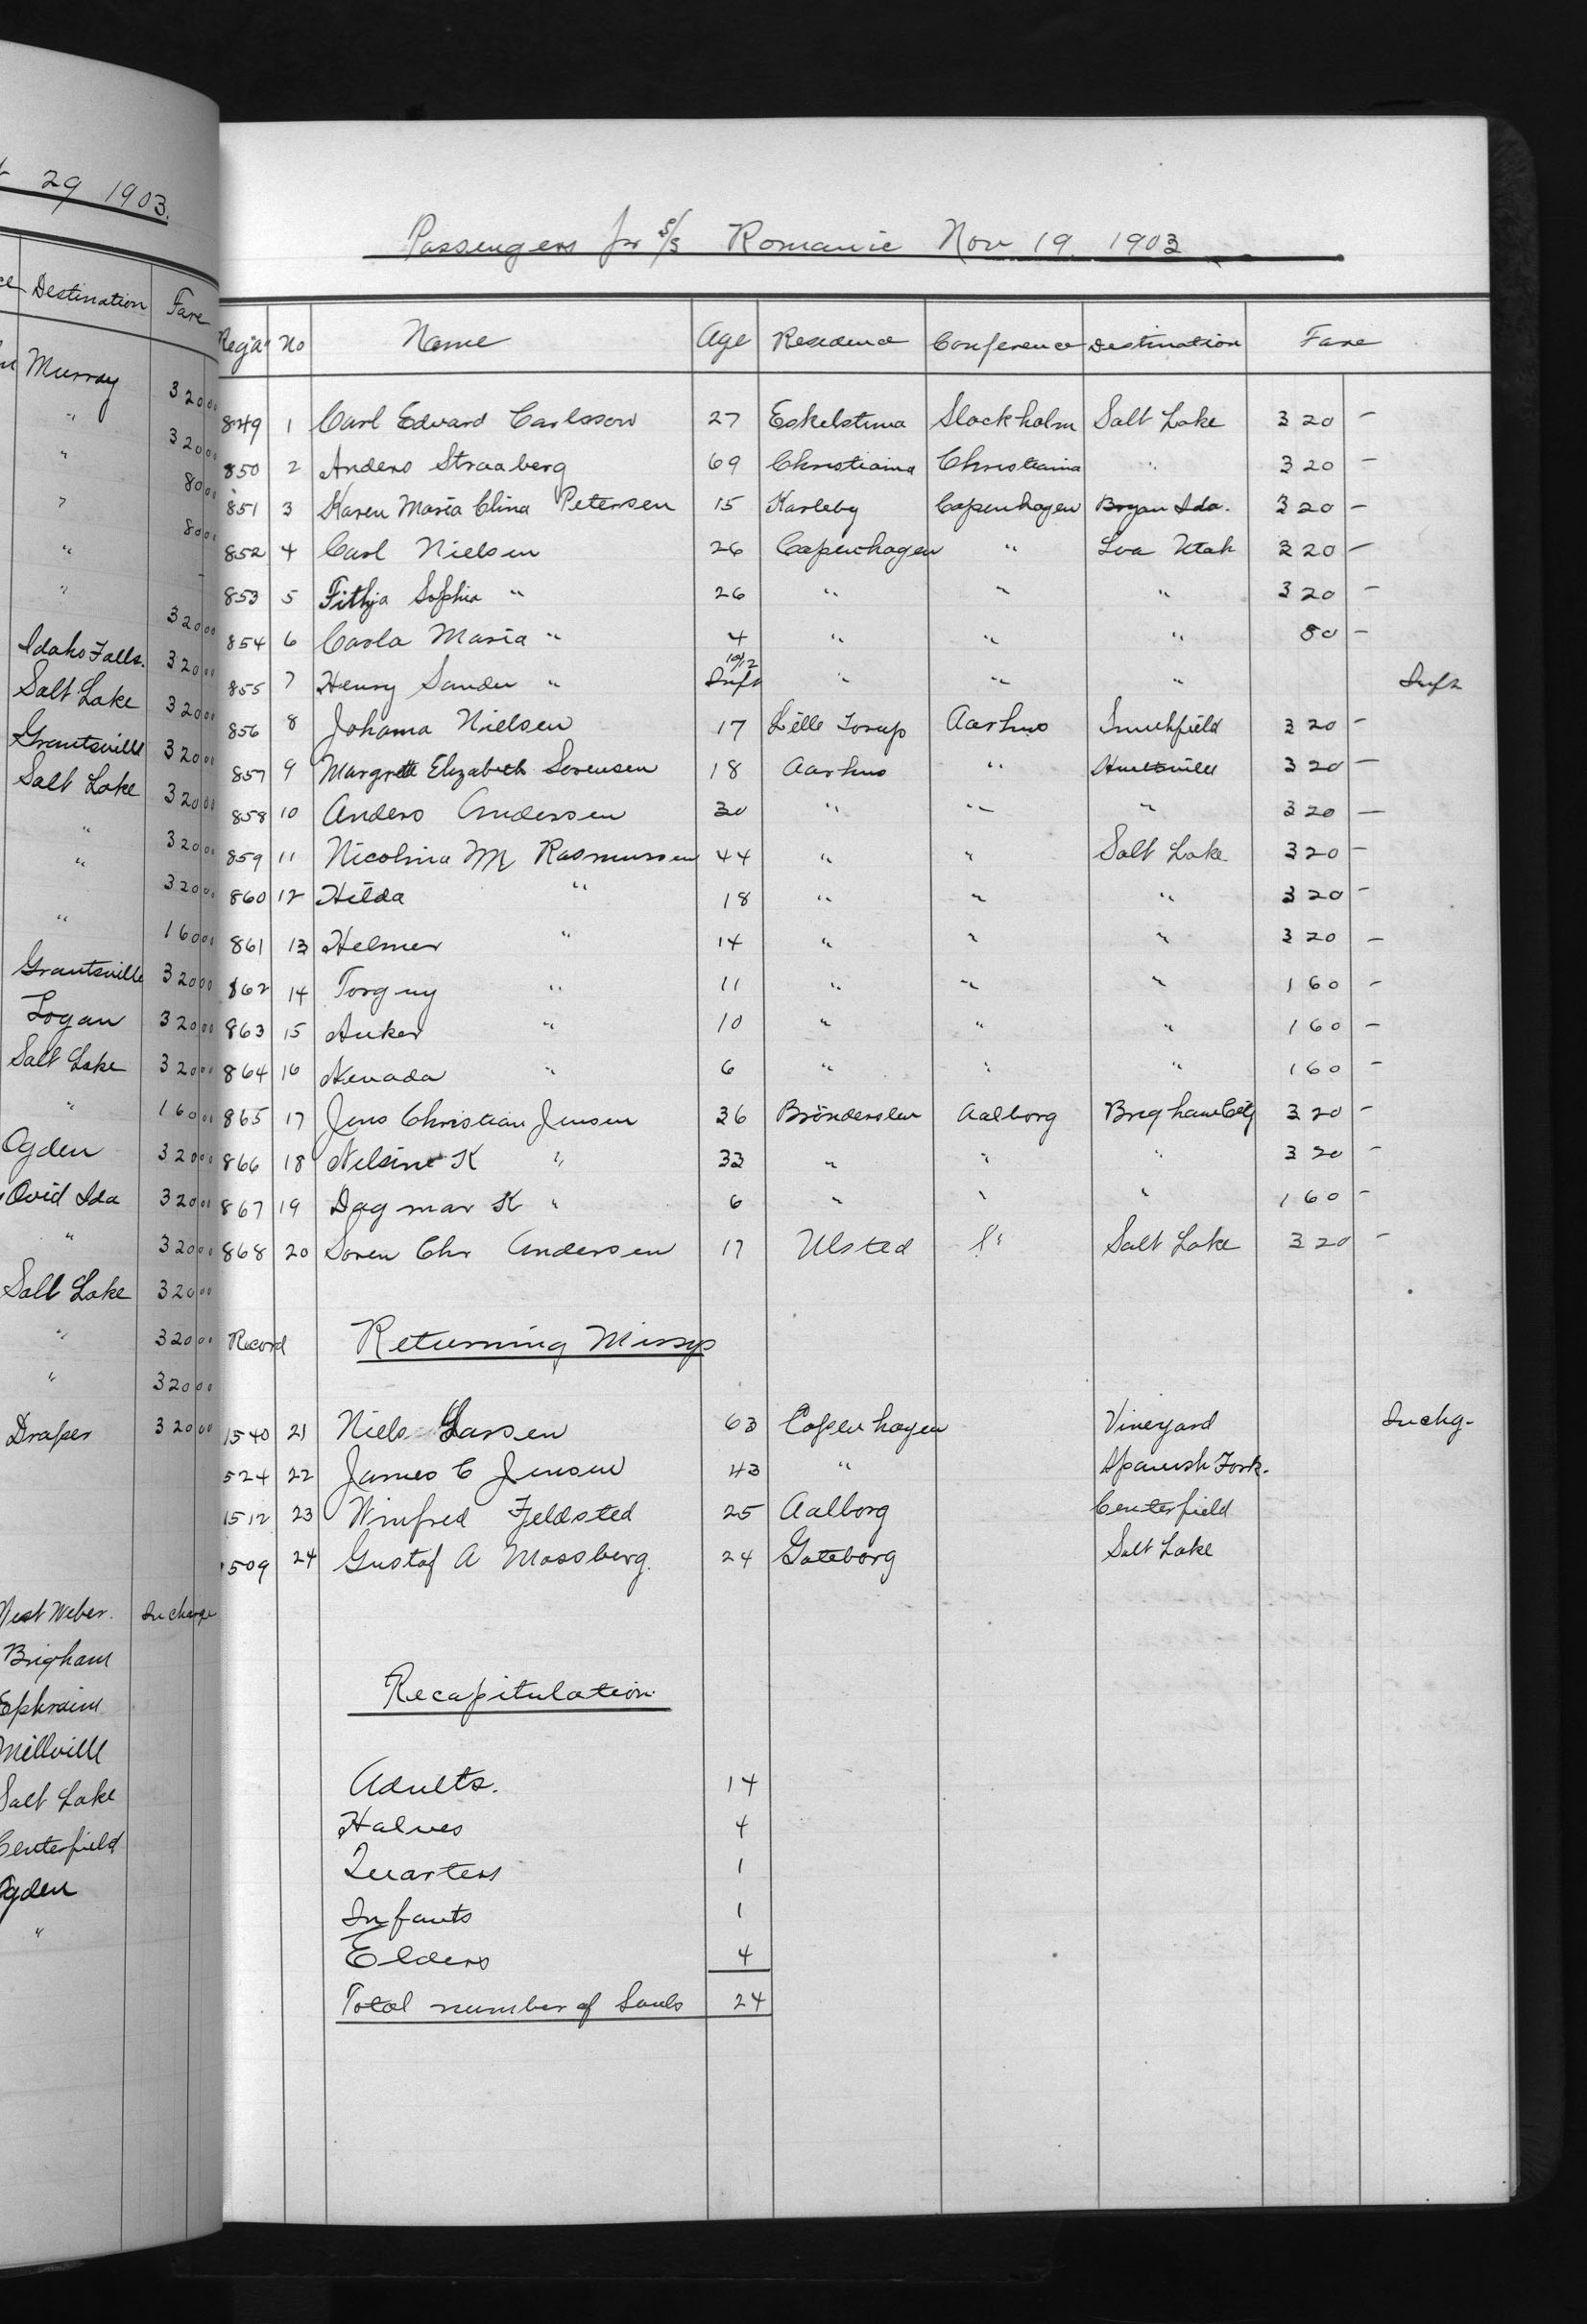 29 1903.
Destination Fare
Murray 320 00
" 320 00
" 80 00
" 80 00
" -
" 320 00
Idaho Falls. 320 00
Salt Lake 320 00
Grantsville 320 00
Salt Lake 320 00
" 320 00
" 320 00
" 160 00
Grantsville 320 00
Logan 320 00
Salt Lake 320 00
" 160 00
Ogden 320 00
Ovid Ida 320 00
" 320 00
Salt Lake 320 00
" 320 00
" 320 00
Draper 320 00
West Weber. In charge
Brigham
Ephraim
Millville
Salt Lake
Centerfield
Ogden
"
Passengers pr s/s Romanic Nov 19 1903
Reg"a" No Name Age Residence Conference Destination Fare
849 1 Carl Edward Carlsson 27 Eskelstuna Stockholm Salt Lake 320 -
850 2 Anders Straaberg 69 Christiania Christiania " 320 -
851 3 Karen Maria Elina Petersen 15 Karleby Copenhagen Bryan Ida. 320 -
852 4 Carl Nielsen 26 Copenhagen " Loa Utah 320 -
853 5 Fithja Sophia " 26 " " " 320 -
854 6 Carla Maria " 4 " " " 80 -
855 7 Henry Sander " 10/12 Inft " " " Inft
856 8 Johanna Nielsen 17 Lille Torup Aarhus Smithfield 320 -
857 9 Margrette Elizabeth Sorensen 18 Aarhus " Huntsville 320 -
858 10 Anders Andersen 30 " " " 320 -
859 11 Nicolina M Rasmussen 44 " " Salt Lake 320 -
860 12 Hilda " 18 " " " 320 -
861 13 Helmer " 14 " " " 320 -
862 14 Torgny " 11 " " " 160 -
863 15 Anker " 10 " " " 160 -
864 16 Nevada " 6 " " " 160 -
865 17 Jens Christian Jensen 36 Brönderslev Aalborg Brigham City 320 -
866 18 Nelsine K " 33 " " " 320 -
867 19 Dagmar K " 6 " " " 160 -
868 20 Soren Chr Andersen 17 Ulsted " Salt Lake 320 -
Record Returning Missys
1540 21 Niels Larsen 63 Copenhagen Vineyard Inchg.
524 22 James C Jensen 43 " Spanish Fork.
1512 23 Winfred Fjeldsted 25 Aalborg Centerfield
1509 24 Gustof A Mossberg. 24 Goteborg Salt Lake
Recapitulation
Adults. 14
Halves 4
Quarters 1
Infants 1
Elders 4
Total number of Souls 24